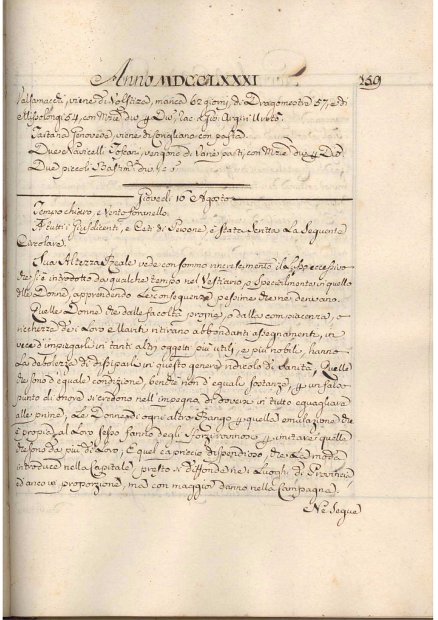 Anno MDCCLXXXI 159
viene di Volstizza, manca 62 giorni, di Dragomestre 57, e di
Missolongi 54, con
Tartana Genovese, viene di Corigliano con pasta.
Due Navicelli Toscani, vengono di varie parti, con
Due piccoli
Giovedì 16 Agosto
Tempo chiaro, e Vento foranello.
A tutti i Giusdicenti, e Ceti di Persone, è stata scritta la seguente
Circolare.
Sua Altezza Reale vede con sommo rincrescimento il Lusso eccessivo
che si è introdotto da qualche tempo nel Vestiario, e specialmente in quello
delle Donne, apprendendo le conseguenze pessime che ne derivano.
Quelle Donne che dalle facoltà proprie, o dalla compiacenza, o
ricchezza de i Loro Mariti ritirano abbondanti assegnamenti, in
vece d'impiegarli in tanti altri oggetti più utili, e più nobili, hanno
la debolezza di dissiparli in questo genere ridicolo di vanità, Quelle
che sono d'eguale condizione, benchè non d'eguali sostanze, per un falso
punto di onore si credono nell'impegno di dovere in tutto eguagliare
alle prime, Le Donne di ogn'altro Rango per quella emulazione che
è propria al Loro sesso fanno degli sforzi per imitare quelle
che sono da più di Loro, E quel capriccio dispendioso, che la moda
introduce nella Capitale presto si diffonde ne i Luoghi di Provincia
ed anco a proporzione, ma con maggior danno nella Campagna.
Ne segue